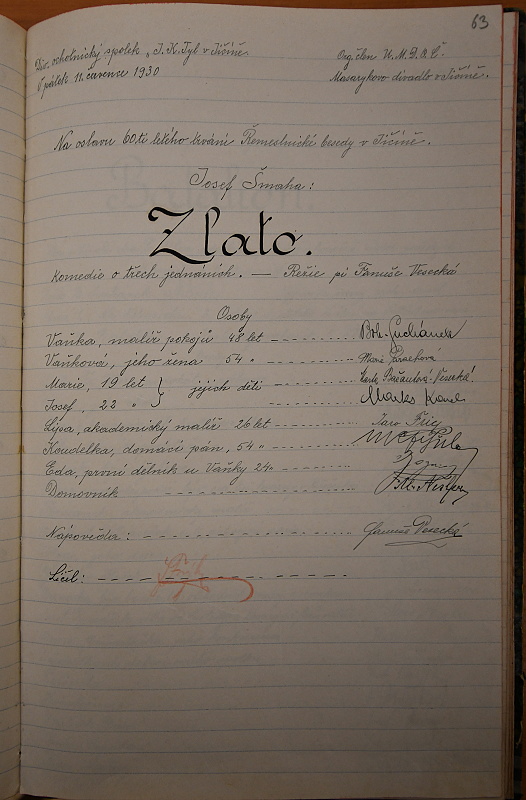 63
Div. ochotnický spolek „J. K. Tyl v Jičíně.
Org. člen U.M.D.O.Č.
V pátek 11. července 1930
Masarykovo divadlo v Jičíně.
Na oslavu 60ti letého trvání Řemeslnické besedy v Jičíně.
Josef Šmaha:
Zlato.
Komedie o třech jednáních. — Režie pí Fanuše Vesecká
Osoby
Vaňka, malíř pokojů 48 let
Vaňková, jeho žena 54 "
Marie
Marie, 19 let } jejich děti
Josef, 22 "
Karel
Lípa, akademický malíř 26 let
Jar.
Koudelka, domácí pán, 54 "
Eda, první dělník u Vaňky 24 "
Domovník
Nápověda: Fanuše Vesecká
Líčil: